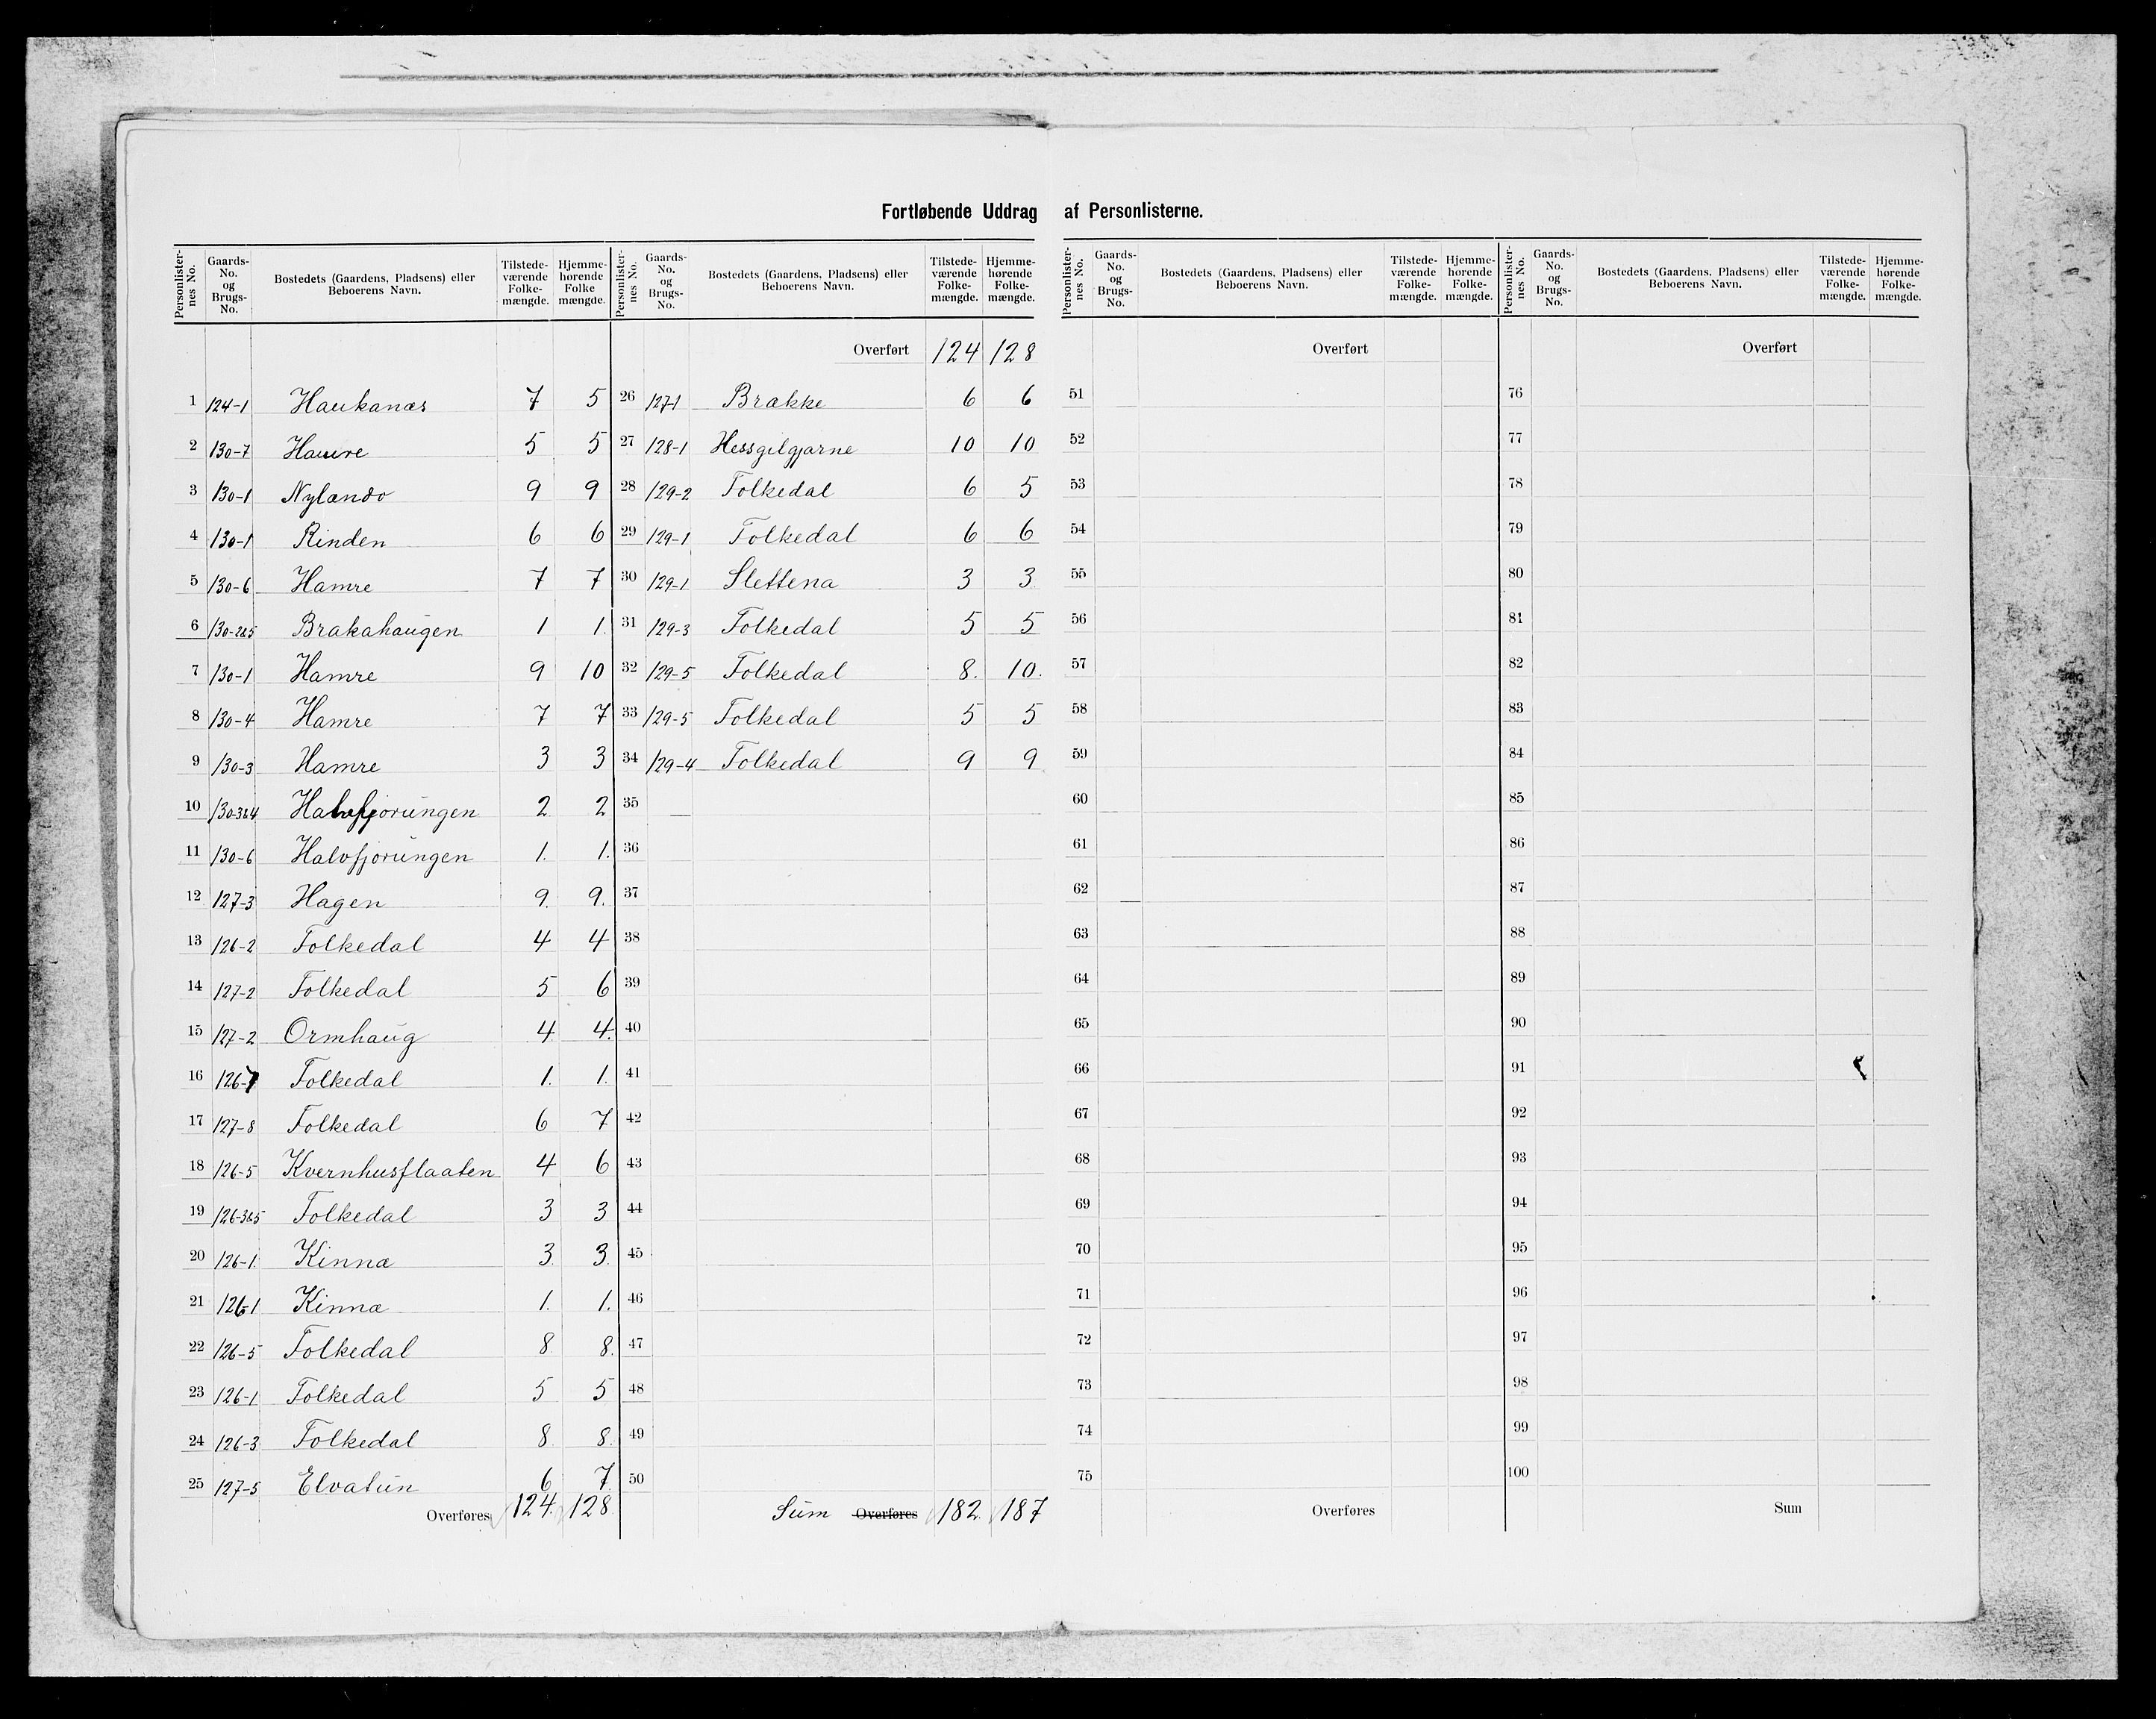 Fortløbende Uddrag af Personlisterne.
Personlister-nes No. Gaards-No. og Brugs-No. Bostedets (Gaardens, Pladsens) eller Beboerens Navn. Tilstede-værende Folke-mængde. Hjemme-hørende Folke mængde.
1 124-1 Haukanæs 7 5
2 130-7 Hamre 5 5
3 130-1 Nylando 9 9
4 130-1 Rinden 6 6
5 130-6 Hamre 7 7
6 130-2&5 Brakahaugen 1 1.
7 130-1 Hamre 9 10
8 130-4 Hamre 7 7
9 130-3 Hamre 3 3
10 130-3&4 Halvfjorungen 2 2
11 130-6 Halvfjorungen 1. 1.
12 127-3 Hagen 9. 9.
13 126-2 Folkedal 4 4
14 127-2 Folkedal 5 6
15 127-2 Ormhaug 4 4.
16 126-7 Folkedal 1. 1.
17 127-8 Folkedal 6 7
18 126-5 Kvernhusflaaten 4 6
19 126-3&5 Folkedal 3 3
20 126-1 Kinna 3. 3.
21 126-1 Kinna 1. 1.
22 126-5 Folkedal 8. 8.
23 126-1 Folkedal 5 5
24 126-3 Folkedal 8. 8.
25 127-5 Elvatun 6 7
Overføres 124. 128.
Personlister-nes No. Gaards-No. og Brugs-No. Bostedets (Gaardens, Pladsens) eller Beboerens Navn. Tilstede-værende Folke-mængde. Hjemme-hørende Folke-mængde.
Overført 124 128
26 127-1 Brække 6 6
27 128-1 Hessgilgjarne 10 10
28 129-2 Folkedal 6 5
29 129-1 Folkedal 6 6
30 129-1 Slettena 3 3
31 129-3 Folkedal 5 5
32 129-5 Folkedal 8. 10.
33 129-5 Folkedal 5 5
34 129-4 Folkedal 9 9
35
36
37
38
39
40
41
42
43
44
45
46
47
48
49
50
Sum Overføres 182. 187
Personlister-nes No. Gaards-No. og Brugs-No. Bostedets (Gaardens, Pladsens) eller Beboerens Navn. Tilstede-værende Folke-mængde. Hjemme-hørende Folke-mængde.
Overført
51
52
53
54
55
56
57
58
59
60
61
62
63
64
65
66
67
68
69
70
71
72
73
74
75
Overføres
Personlister-nes No. Gaards-No. og Brugs-No. Bostedets (Gaardens, Pladsens) eller Beboerens Navn. Tilstede-værende Folke-mængde. Hjemme-hørende Folke-mængde.
Overført
76
77
78
79
80
81
82
83
84
85
86
87
88
89
90
91
92
93
94
95
96
97
98
99
100
Sum